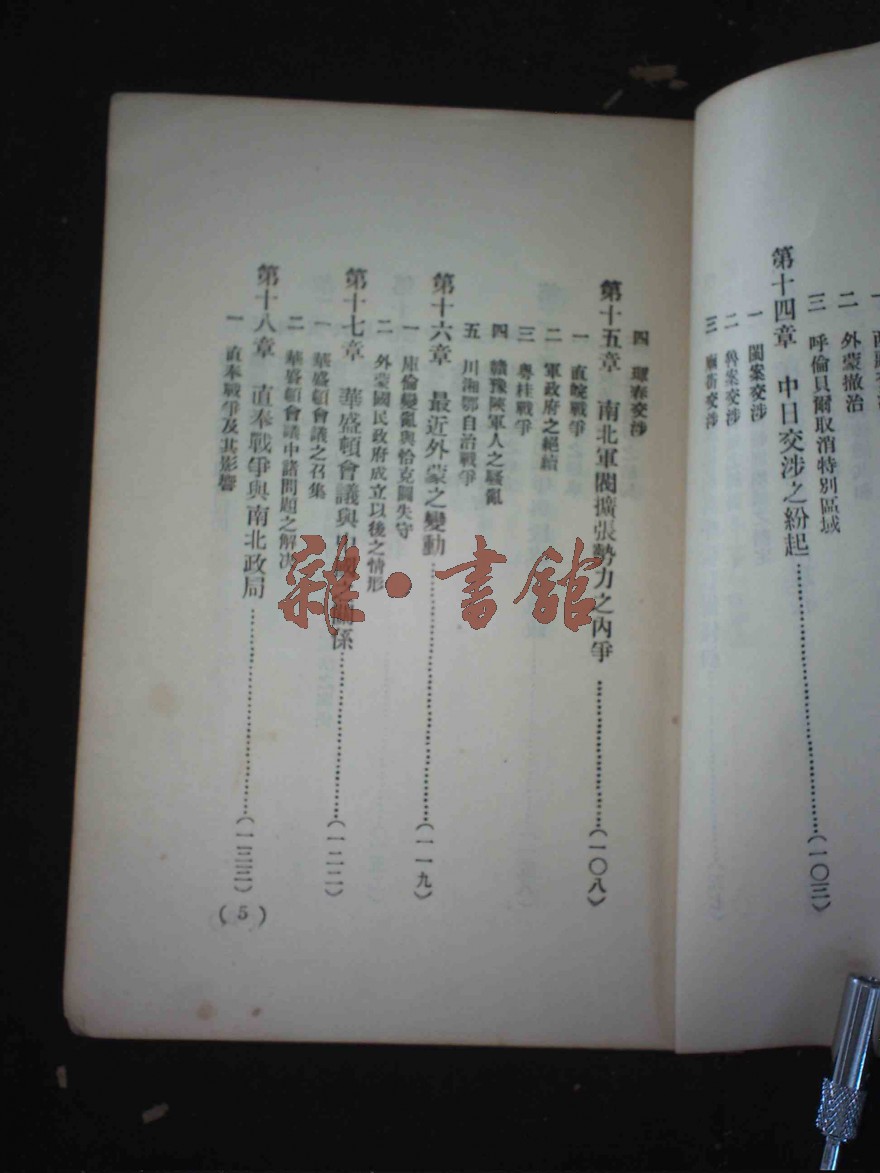 二 外蒙撤治
三 呼倫貝爾取消特別區域
第十四章 中日交涉之紛起……………………(一〇三)
一 閩案交涉
二 魯案交涉
三 廟街交涉
四 琿春交涉
第十五章 南北軍閥擴張勢力之內爭……………(一〇八)
一 直皖戰爭
二 軍政府之絕續
三 粵桂戰爭
四 贛豫陝軍人之騷亂
五 川湘鄂自治戰爭
第十六章 最近外蒙之變動……………………(一一九)
一 庫倫變亂與恰克圖失守
二 外蒙國民政府成立以後之情形
第十七章 華盛頓會議與中國之關係……………(一二二)
一 華盛頓會議之召集
二 華盛頓會議中諸問題之解決
第十八章 直奉戰爭與南北政局………………(一三三)
一 直奉戰爭及其影響
(5)
雜·書館